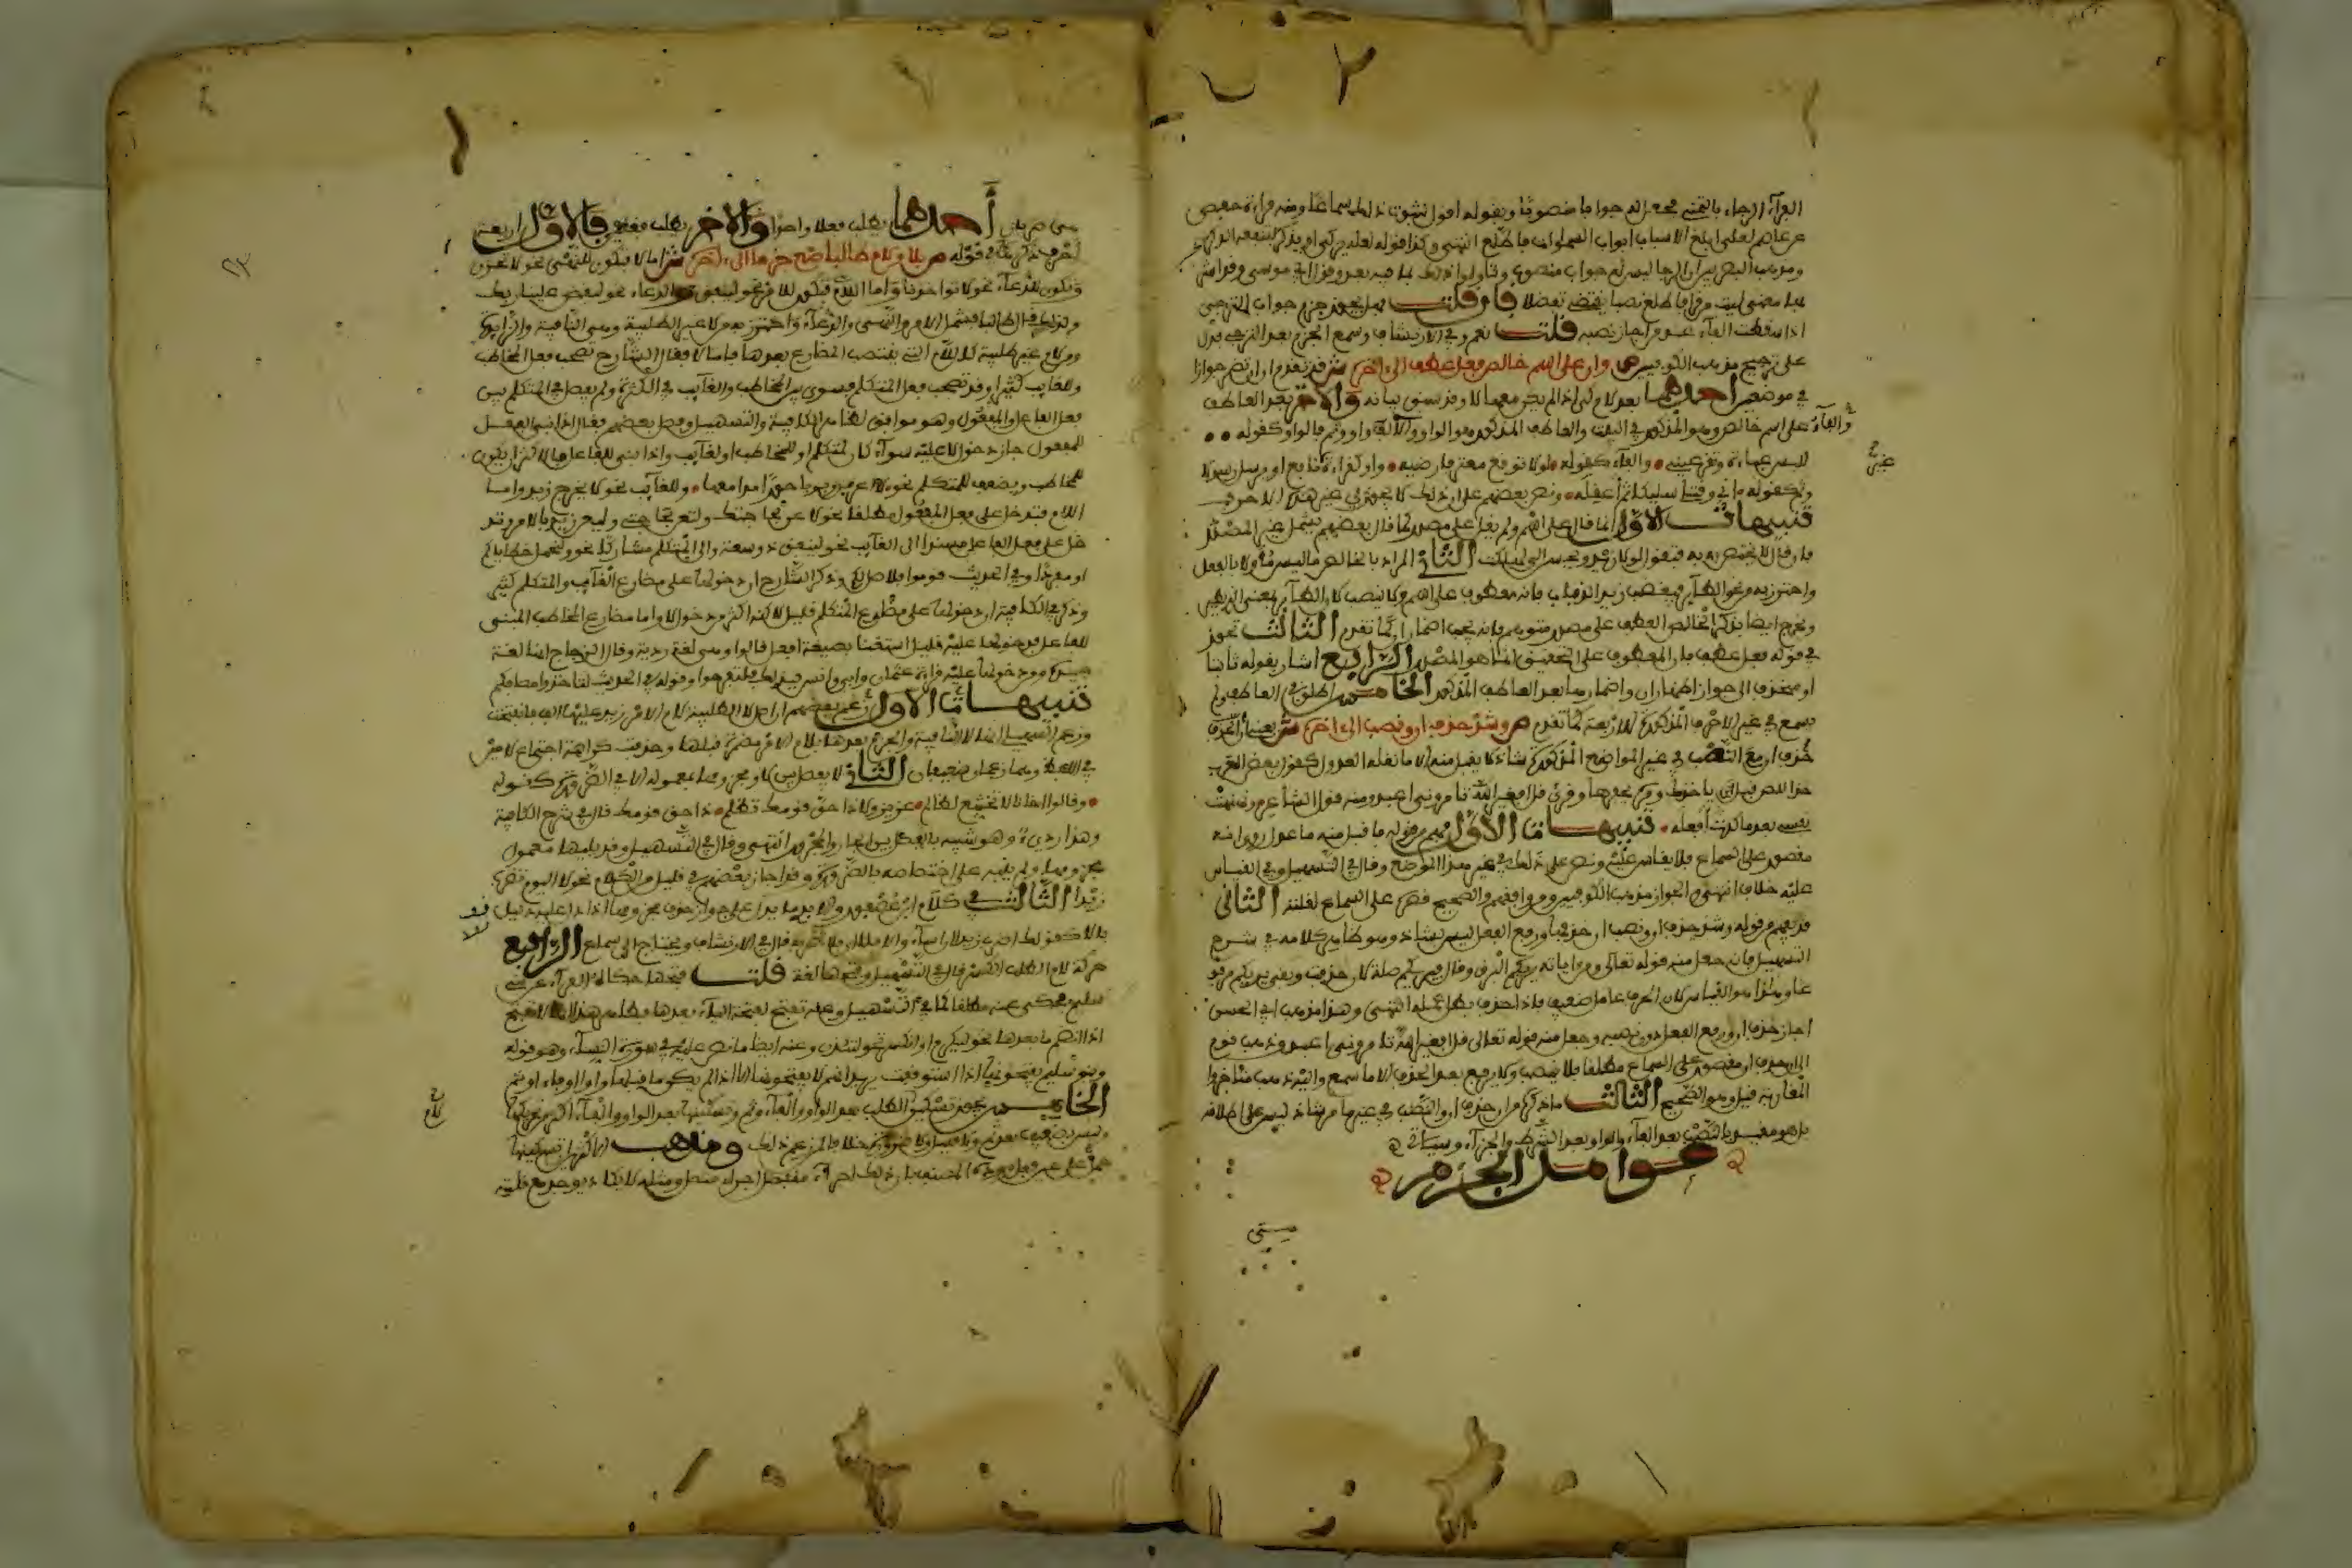 الفراء الرجاء بالتمني فجعل له جوابا منصوبا وبقوله اقول لثبوت ذلك سماعا ومنه قراءة حفص
عن عاصم لعلي ابلغ الاسباب اسباب السموات فاطلع انتهى وكذا قوله لعله يزكى او يذكر فتنفعه الذكرى
ومذهب البصريين ان الرجا ليس له جواب منصوب وتاولوا ذلك بما فيه بعد وقول ابي موسى وقد اشربها
معنى ليت من قرا فاطلع نصبا يقتضي تفصيلا فان قلت هل يجوز جزم جواب الترجي
اذا سقطت الفاء عند من اجاز نصبه قلت نعم وفي الارتشاف وسمع الجزم بعد الترجي فدل
على ترجيح مذهب الكوفيين ص وان على اسم خالص فعل عطف الى اخره ش قد تقدم ان ان تضمر جوازا
في موضعين احدهما بعد لام كي اذا لم يكن معها لا وقد سبق بيانه والاخر بعد العاطف
على اسم خالص وهو المذكور في البيت والعاطف المذكور هو الواو و او وثم والفاء فالواو كقوله
للبس عباءة وتقر عيني والفاء كقوله لولا توقع معتر فارضيه واو كقراءة نافع او يرسل رسولا
وثم كقوله اني وقتلي سليكا ثم اعقله ونص بعضهم على ان ذلك لا يجوز في غير هذه الاحرف
تنبيهات الاول انما قال على اسم ولم يقل على مصدر كما قال بعضهم ليشمل غير المصدر
فان ذلك لا يختص به فتقول لولا زيد ويحسن الي لهلكت الثاني المراد بالخالص ما ليس مؤولا بالفعل
واحترز به من نحو الطائر فيغضب زيد الذباب فانه معطوف على اسم ولا ينصب لان الطائر بمعنى الذي يطير
وخرج ايضا بذكر الخالص العطف على مصدر متوهم فانه يجب اضمار ان كما تقدم الثالث تجوز
في قوله فعل عطف فان المعطوف على التحقيق انما هو المصدر الرابع اشار بقوله ثابتا
او منحذف الى جواز اظهار ان واضمارها بعد العاطف المذكور الخامس اطلق في العاطف ولم
يسمع في غير الاحرف المذكورة الاربعة كما تقدم ص وشذ حذف ان ونصب الى اخره ش يعني ان
حذف ان مع النصب في غير المواضع المذكورة شاذ لا يقبل منه الا ما نقله العدول كقول بعض العرب
خذ اللص قبل ياخذك ومره يحفرها وقرئ قل افغير الله تامروني اعبد ومنه قول الشاعر ونهنهت
نفسي بعد ما كدت افعله تنبيهات الاول فهم من قوله فاقبل منه ما عدل روى انه
مقصور على السماع فلا يقاس عليه ونص على ذلك في غير هذا الموضع وقال في التسهيل وفي القياس
عليه خلاف انتهى والجواز مذهب الكوفيين ومن وافقهم والصحيح قصره على السماع لقلته الثاني
قد يفهم من قوله وشذ حذف ان ونصب ان حذفها ورفع الفعل ليس بشاذ وهو ظاهر كلامه في شرح
التسهيل فانه جعل منه قوله تعالى ومن اياته يريكم البرق وقال فيريكم صلة لان حذفت وبقي يريكم مرفو
عا وهذا هو القياس لان الحرف عامل ضعيف فاذا حذف بطل عمله انتهى وهذا مذهب ابي الحسن
اجاز حذف ان ورفع الفعل دون نصبه وجعل منه قوله تعالى قل افغير الله تامروني اعبد وذهب قوم
الى ان حذف ان مقصور على السماع مطلقا فلا ينصب ولا يرفع بعد الحذف الا ما سمع واليه ذهب متاخروا
المغاربة قيل وهو الصحيح الثالث ما ذكره من ان حذف ان والنصب في غير ما مر شاذ ليس على اطلاقه
بل هو مقيد بالنصب بعد الفاء والواو بعد الشرط والجزاء وسياتي
عوامل الجزم
هي ضربان احدهما يطلب فعلا واحدا والاخر يطلب فعلين فالاول اربعة
احرف ذكرها في قوله ص بلا ولام طالبا ضع جزما الى اخره ش اما لا فتكون للنهي نحو لا تحزن
وتكون للدعاء نحو لا تؤاخذنا واما اللام فتكون للامر نحو لينفق وللدعاء نحو ليقض علينا ربك
ولذلك قال طالبا فشمل الامر والنهي والدعاء واحترز به من لا غير الطلبية وهي النافية والزائدة
ومن لام غير طلبية كاللام التي ينتصب المضارع بعدها فاما لا فقال الشارح تصحب فعل المخاطب
والغائب كثيرا وقد تصحب فعل المتكلم فسوى بين المخاطب والغائب في الكثرة ولم يفصل في المتكلم بين
فعل الفاعل والمفعول وهو موافق لظاهر الكافية والتسهيل وفصل بعضهم فقال اذا بني الفعل
للمفعول جاز دخول لا عليه سواء كان لمتكلم او للمخاطب او لغائب واذا بني للفاعل فالاكثر ان يكون
للمخاطب ويضعف للمتكلم نحو لا اعرفن ربربا حورا مدامعها وللغائب نحو لا يخرج زيد واما
اللام فتدخل على فعل المفعول مطلقا نحو لاعن بحاجتك ولتعن بحاجتي وليعن زيد بالامر وتد
خل على فعل الفاعل مسندا الى الغائب نحو لينفق ذو سعة والى المتكلم مشاركا نحو ولنحمل خطاياكم
او مفردا وفي الحديث قوموا فلاصل لكم وذكر الشارح ان دخولها على مضارع الغائب والمتكلم كثير
وذكر في الكافية ان دخولها على مضارع المتكلم قليل لكنه اكثر من دخول لا واما مضارع المخاطب المبني
للفاعل فدخولها عليه قليل استغنا بصيغة افعل قالوا وهي لغة ردية وقال الزجاج انها لغة
جيدة ومن دخولها عليه قراءة عثمان وابي وانس فبذلك فلتفرحوا وقوله في الحديث لتاخذوا مصافكم
تنبيهات الاول زعم بعضهم ان اصل لا الطلبية لام الامر زيد عليها الف فانفتحت
وزعم السهيلي انها لا النافية والجزم بعدها بلام الامر مضمرة قبلها وحذفت كراهة اجتماع لامين
في اللفظ وهما زعمان ضعيفان الثاني لا يفصل بين لا ومجزومها بمعموله الا في الضرورة كقوله
وقالوا اخانا لا تخشع لظالم عزيز ولا ذا حق قومك تظلم ذا حق قومك قال في شرح الكافية
وهذا رديء وهو شبيه بالفصل بين الجار والمجرور انتهى وقال في التسهيل وقد يليها معمول
مجزومها ولم ينبه على اختصاصه بالضرورة وقد اجاز بعضهم في قليل من الكلام نحو لا اليوم تضرب
زيدا الثالث في كلام ابن عصفور والابذي ما يدل على جواز حذف مجزومها اذا دل عليه دليل
كقولك اضرب زيدا ان اساء والا فلا قال في الارتشاف ويحتاج الى سماع الرابع
حركة لام الطلب الكسر قال في التسهيل وفتحها لغة قلت فتحها حكاه الفراء عن بني
سليم فحكى عنه مطلقا كما في التسهيل وعنه تفتح لفتحة الياء بعدها فظاهر هذا انها لا تفتح
اذا انضم ما بعدها نحو ليكرم او انكسر نحو لتئذن وعنه ايضا ما نص عليه في سورة النساء وهو قوله
وبنو سليم يفتحونها اذا استؤنفت يريد انهم لا يفتحونها الا اذا لم يكن ما قبلها واوا او فاء او ثم
الخامس يجوز تسكين لام الطلب بعد الواو والفاء وثم وتسكينها بعد الواو والفاء اكثر من تحريكها
وليس بضعيف بعد ثم ولا قليل ولا ضرورة خلافا لمن زعم ذلك ومذهب